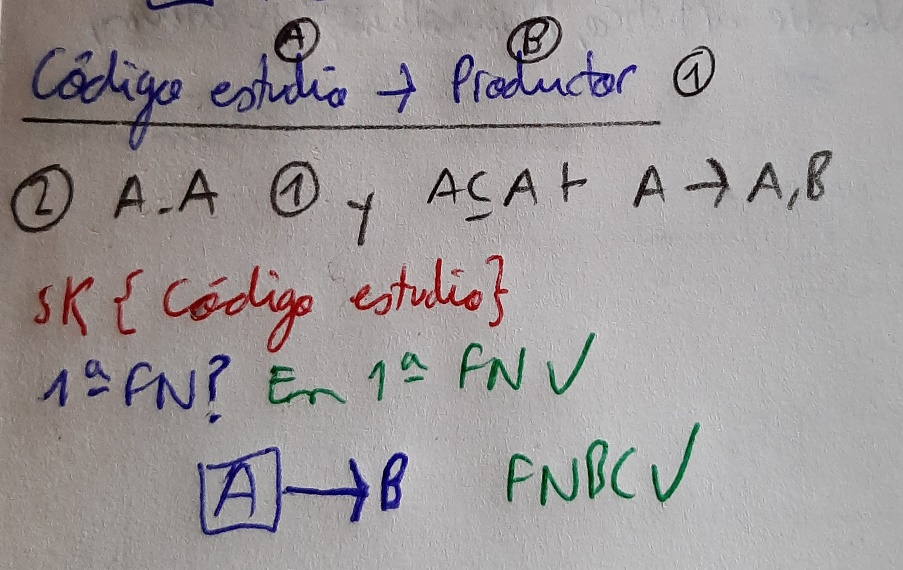 Ⓐ Ⓑ
Código estudio → Productor ①
② A.A ① y A⊆A⊢ A→A,B
SK {Código estudio}
1ª FN? En 1ª FN ✓
A → B FNBC ✓